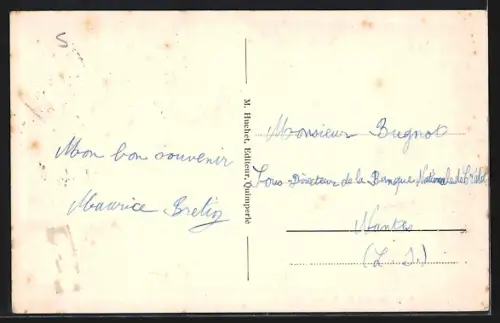 S
Mon bon souvenir
Maurice
M. Huchet, Editeur, Quimperlé
Monsieur Bugnot
Sous-Directeur de la Banque Nationale de Crédit
Nantes
(L. I.)